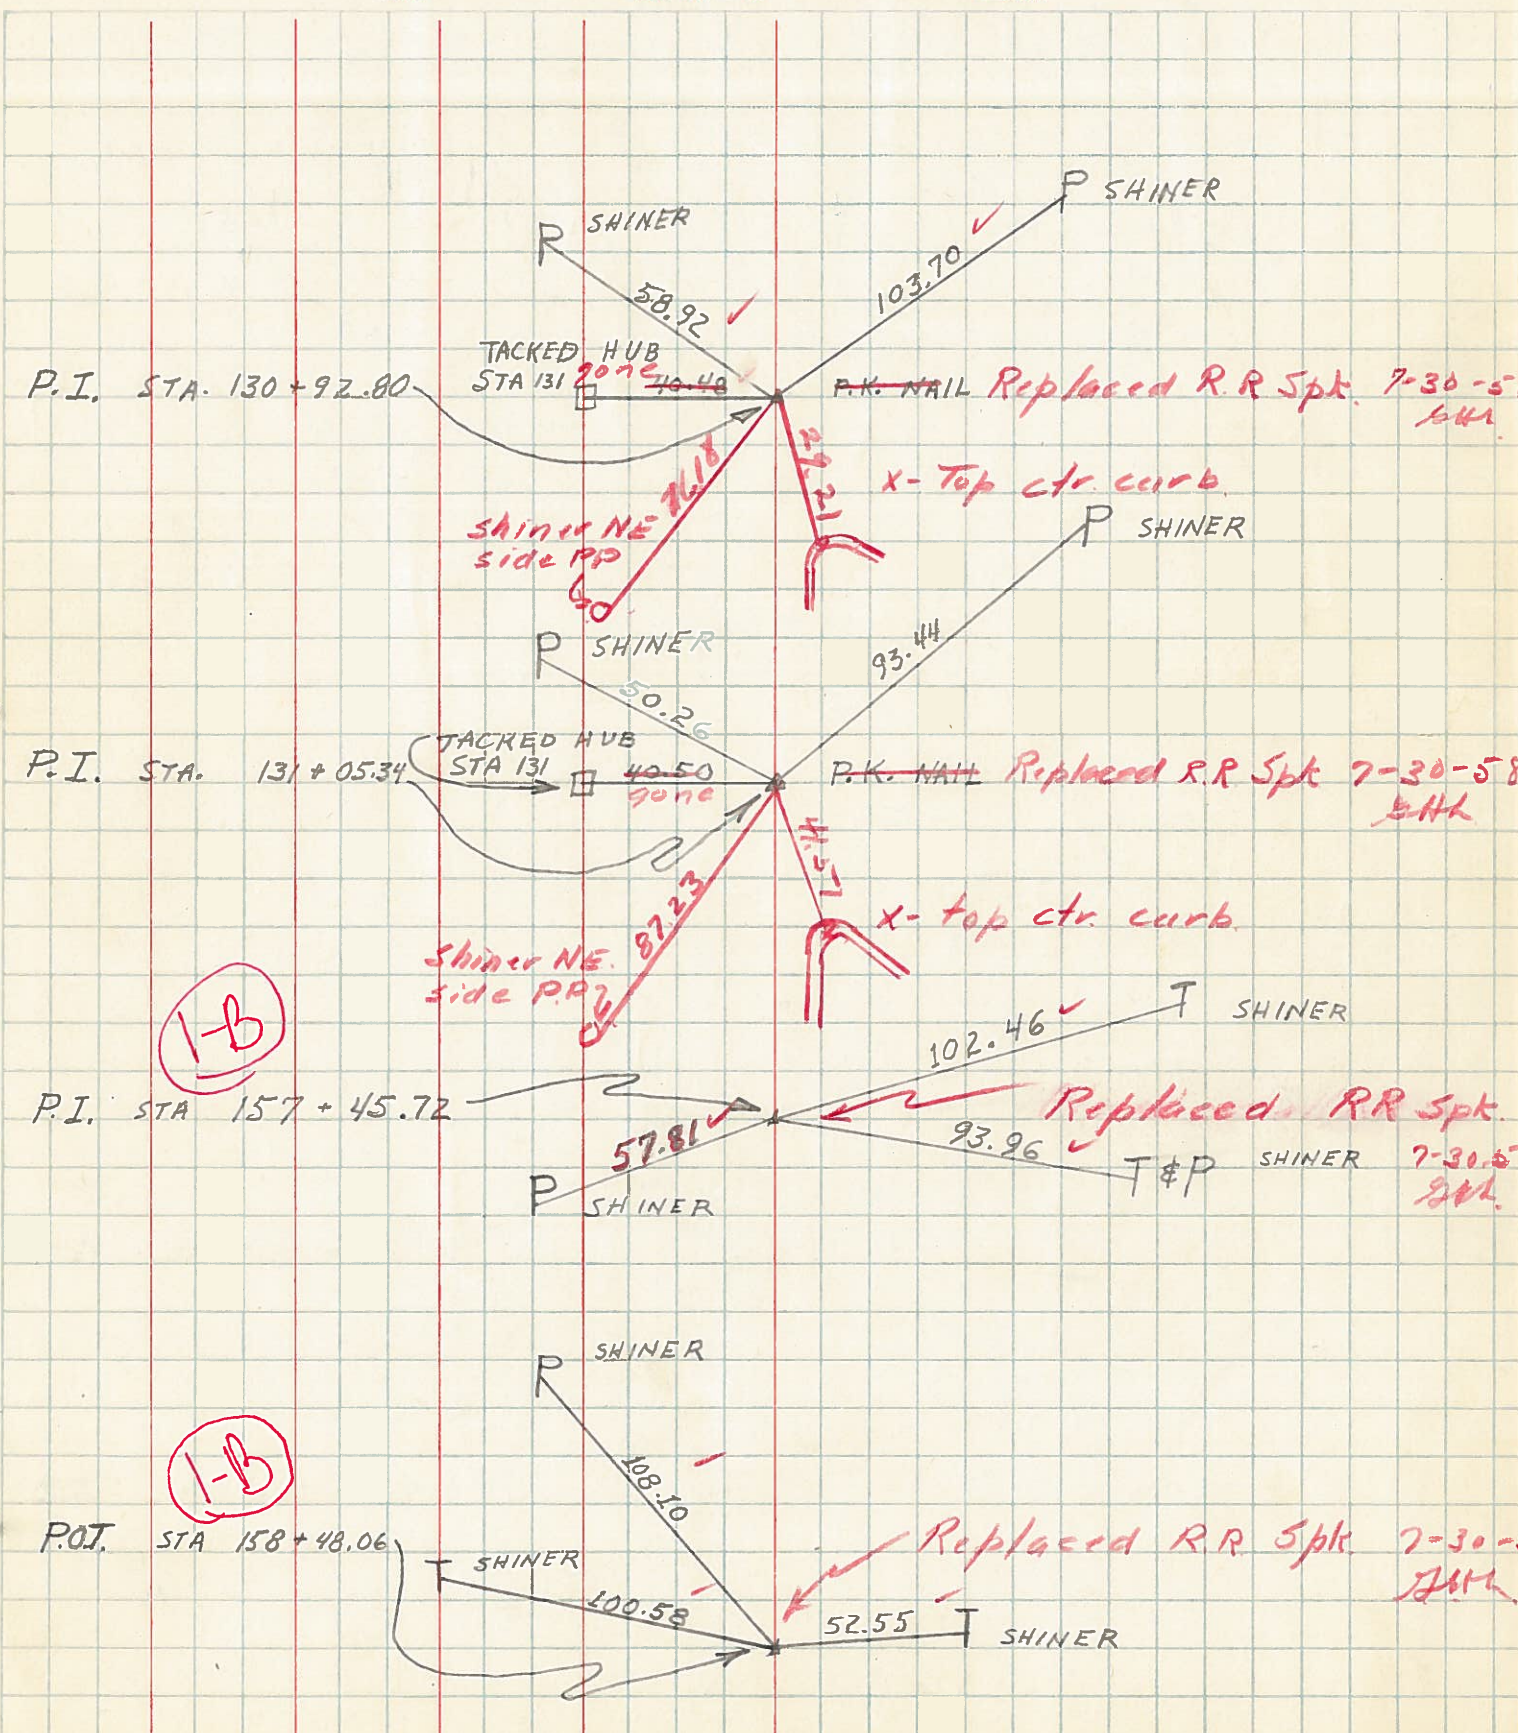 P SHINER
R SHINER
103.70
58.92
TACKED HUB
STA 131 gone 40.48
P.I. STA. 130 + 92.80
P.K. NAIL Replaced R.R Spk. 7-30-5
29.21
x- Top ctr. curb
shiner NE
side PP
P SHINER
P SHINER
93.44
50.26
TACKED HUB
STA 131
40.50
gone
P.I. STA. 131 + 05.34
P.K. NAIL Replaced R.R Spk 7-30-58
87.23
x- top ctr. curb.
Shiner NE.
side P.P.
1-B
T SHINER
102.46
P.I. STA 157 + 45.72
Replaced RR Spk.
57.81
93.96
T & P SHINER 7-30-5
P SHINER
R SHINER
1-B
108.10
P.O.T. STA 158 + 48.06
Replaced R.R. Spk. 7-30-
T SHINER
100.58
52.55
T SHINER